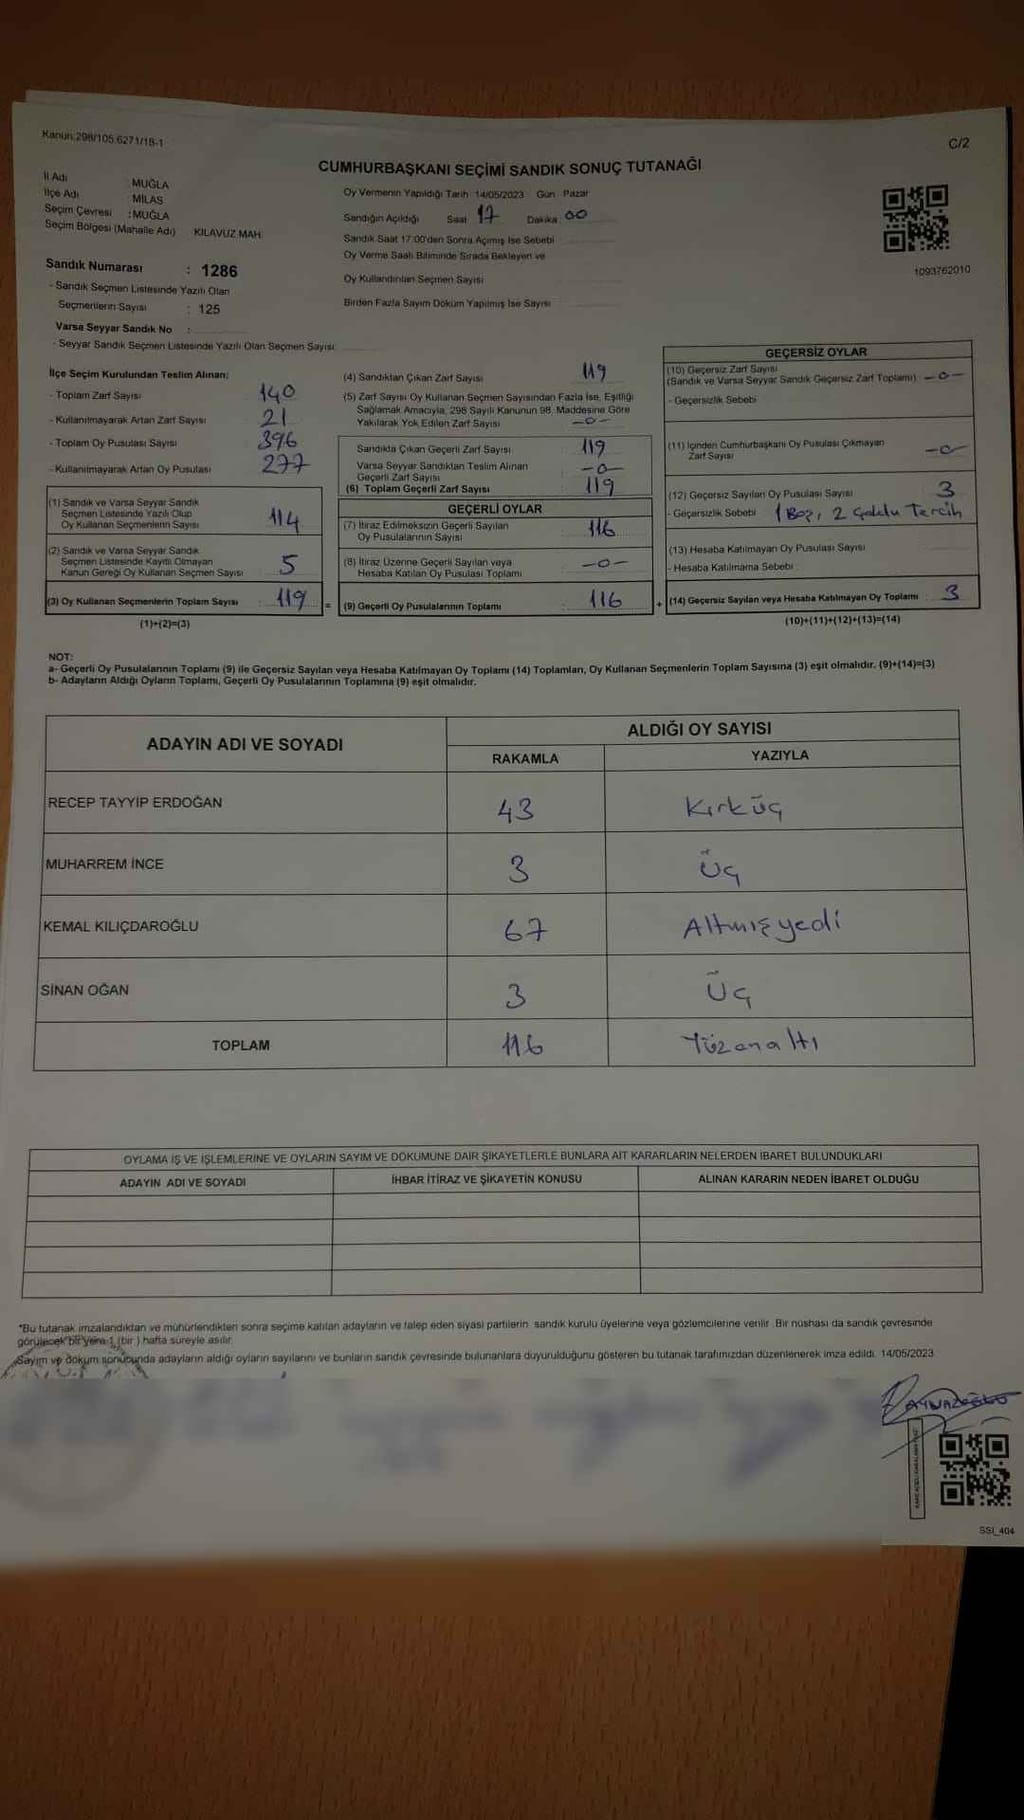 Kanun:298/105,6271/18-1
C/2
CUMHURBAŞKANI SEÇİMİ SANDIK SONUÇ TUTANAĞI
İl Adı : MUĞLA
İlçe Adı : MİLAS
Seçim Çevresi : MUĞLA
Seçim Bölgesi (Mahalle Adı) KILAVUZ MAH.
Sandık Numarası : 1286
- Sandık Seçmen Listesinde Yazılı Olan
Seçmenlerin Sayısı : 125
Varsa Seyyar Sandık No :
- Seyyar Sandık Seçmen Listesinde Yazılı Olan Seçmen Sayısı:
Oy Vermenin Yapıldığı Tarih : 14/05/2023 Gün : Pazar
Sandığın Açıldığı Saat 17 Dakika 00
Sandık Saat 17:00'den Sonra Açımış İse Sebebi
Oy Verme Saati Bitiminde Sırada Bekleyen ve
Oy Kullandırılan Seçmen Sayısı
Birden Fazla Sayım Döküm Yapılmış İse Sayısı
1093762010
İlçe Seçim Kurulundan Teslim Alınan;
- Toplam Zarf Sayısı 140
- Kullanılmayarak Artan Zarf Sayısı 21
- Toplam Oy Pusulası Sayısı 396
- Kullanılmayarak Artan Oy Pusulası 277
(1) Sandık ve Varsa Seyyar Sandık
Seçmen Listesinde Yazılı Olup
Oy Kullanan Seçmenlerin Sayısı 114
(2) Sandık ve Varsa Seyyar Sandık
Seçmen Listesinde Kayıtlı Olmayan
Kanun Gereği Oy Kullanan Seçmen Sayısı 5
(3) Oy Kullanan Seçmenlerin Toplam Sayısı : 119 =
(1)+(2)=(3)
(4) Sandıktan Çıkan Zarf Sayısı 119
(5) Zarf Sayısı Oy Kullanan Seçmen Sayısından Fazla İse, Eşitliği
Sağlamak Amacıyla, 298 Sayılı Kanunun 98. Maddesine Göre
Yakılarak Yok Edilen Zarf Sayısı -0-
Sandıkta Çıkan Geçerli Zarf Sayısı 119
Varsa Seyyar Sandıktan Teslim Alınan
Geçerli Zarf Sayısı -0-
(6) Toplam Geçerli Zarf Sayısı 119
GEÇERLİ OYLAR
(7) İtiraz Edilmeksizin Geçerli Sayılan
Oy Pusulalarının Sayısı 116
(8) İtiraz Üzerine Geçerli Sayılan veya
Hesaba Katılan Oy Pusulası Toplamı -0-
(9) Geçerli Oy Pusulalarının Toplamı : 116 +
GEÇERSİZ OYLAR
(10) Geçersiz Zarf Sayısı
(Sandık ve Varsa Seyyar Sandık Geçersiz Zarf Toplamı) -0-
- Geçersizlik Sebebi
(11) İçinden Cumhurbaşkanı Oy Pusulası Çıkmayan
Zarf Sayısı -0-
(12) Geçersiz Sayılan Oy Pusulası Sayısı 3
- Geçersizlik Sebebi 1 Boş, 2 Çoklu Tercih
(13) Hesaba Katılmayan Oy Pusulası Sayısı
- Hesaba Katılmama Sebebi
(14) Geçersiz Sayılan veya Hesaba Katılmayan Oy Toplamı : 3
(10)+(11)+(12)+(13)=(14)
NOT:
a- Geçerli Oy Pusulalarının Toplamı (9) ile Geçersiz Sayılan veya Hesaba Katılmayan Oy Toplamı (14) Toplamları, Oy Kullanan Seçmenlerin Toplam Sayısına (3) eşit olmalıdır. (9)+(14)=(3)
b- Adayların Aldığı Oyların Toplamı, Geçerli Oy Pusulalarının Toplamına (9) eşit olmalıdır.
ADAYIN ADI VE SOYADI
ALDIĞI OY SAYISI
RAKAMLA YAZIYLA
RECEP TAYYİP ERDOĞAN 43 Kırküç
MUHARREM İNCE 3 Üç
KEMAL KILIÇDAROĞLU 67 Altmışyedi
SİNAN OĞAN 3 Üç
TOPLAM 116 Yüzonaltı
OYLAMA İŞ VE İŞLEMLERİNE VE OYLARIN SAYIM VE DÖKÜMÜNE DAİR ŞİKAYETLERLE BUNLARA AİT KARARLARIN NELERDEN İBARET BULUNDUKLARI
ADAYIN ADI VE SOYADI İHBAR İTİRAZ VE ŞİKAYETİN KONUSU ALINAN KARARIN NEDEN İBARET OLDUĞU
*Bu tutanak imzalandıktan ve mühürlendikten sonra seçime katılan adayların ve talep eden siyasi partilerin sandık kurulu üyelerine veya gözlemcilerine verilir. Bir nüshası da sandık çevresinde
görülecek bir yere 1 (bir) hafta süreyle asılır.
Sayım ve döküm sonucunda adayların aldığı oyların sayılarını ve bunların sandık çevresinde bulunanlara duyurulduğunu gösteren bu tutanak tarafımızdan düzenlenerek imza edildi. 14/05/2023
SSI_404